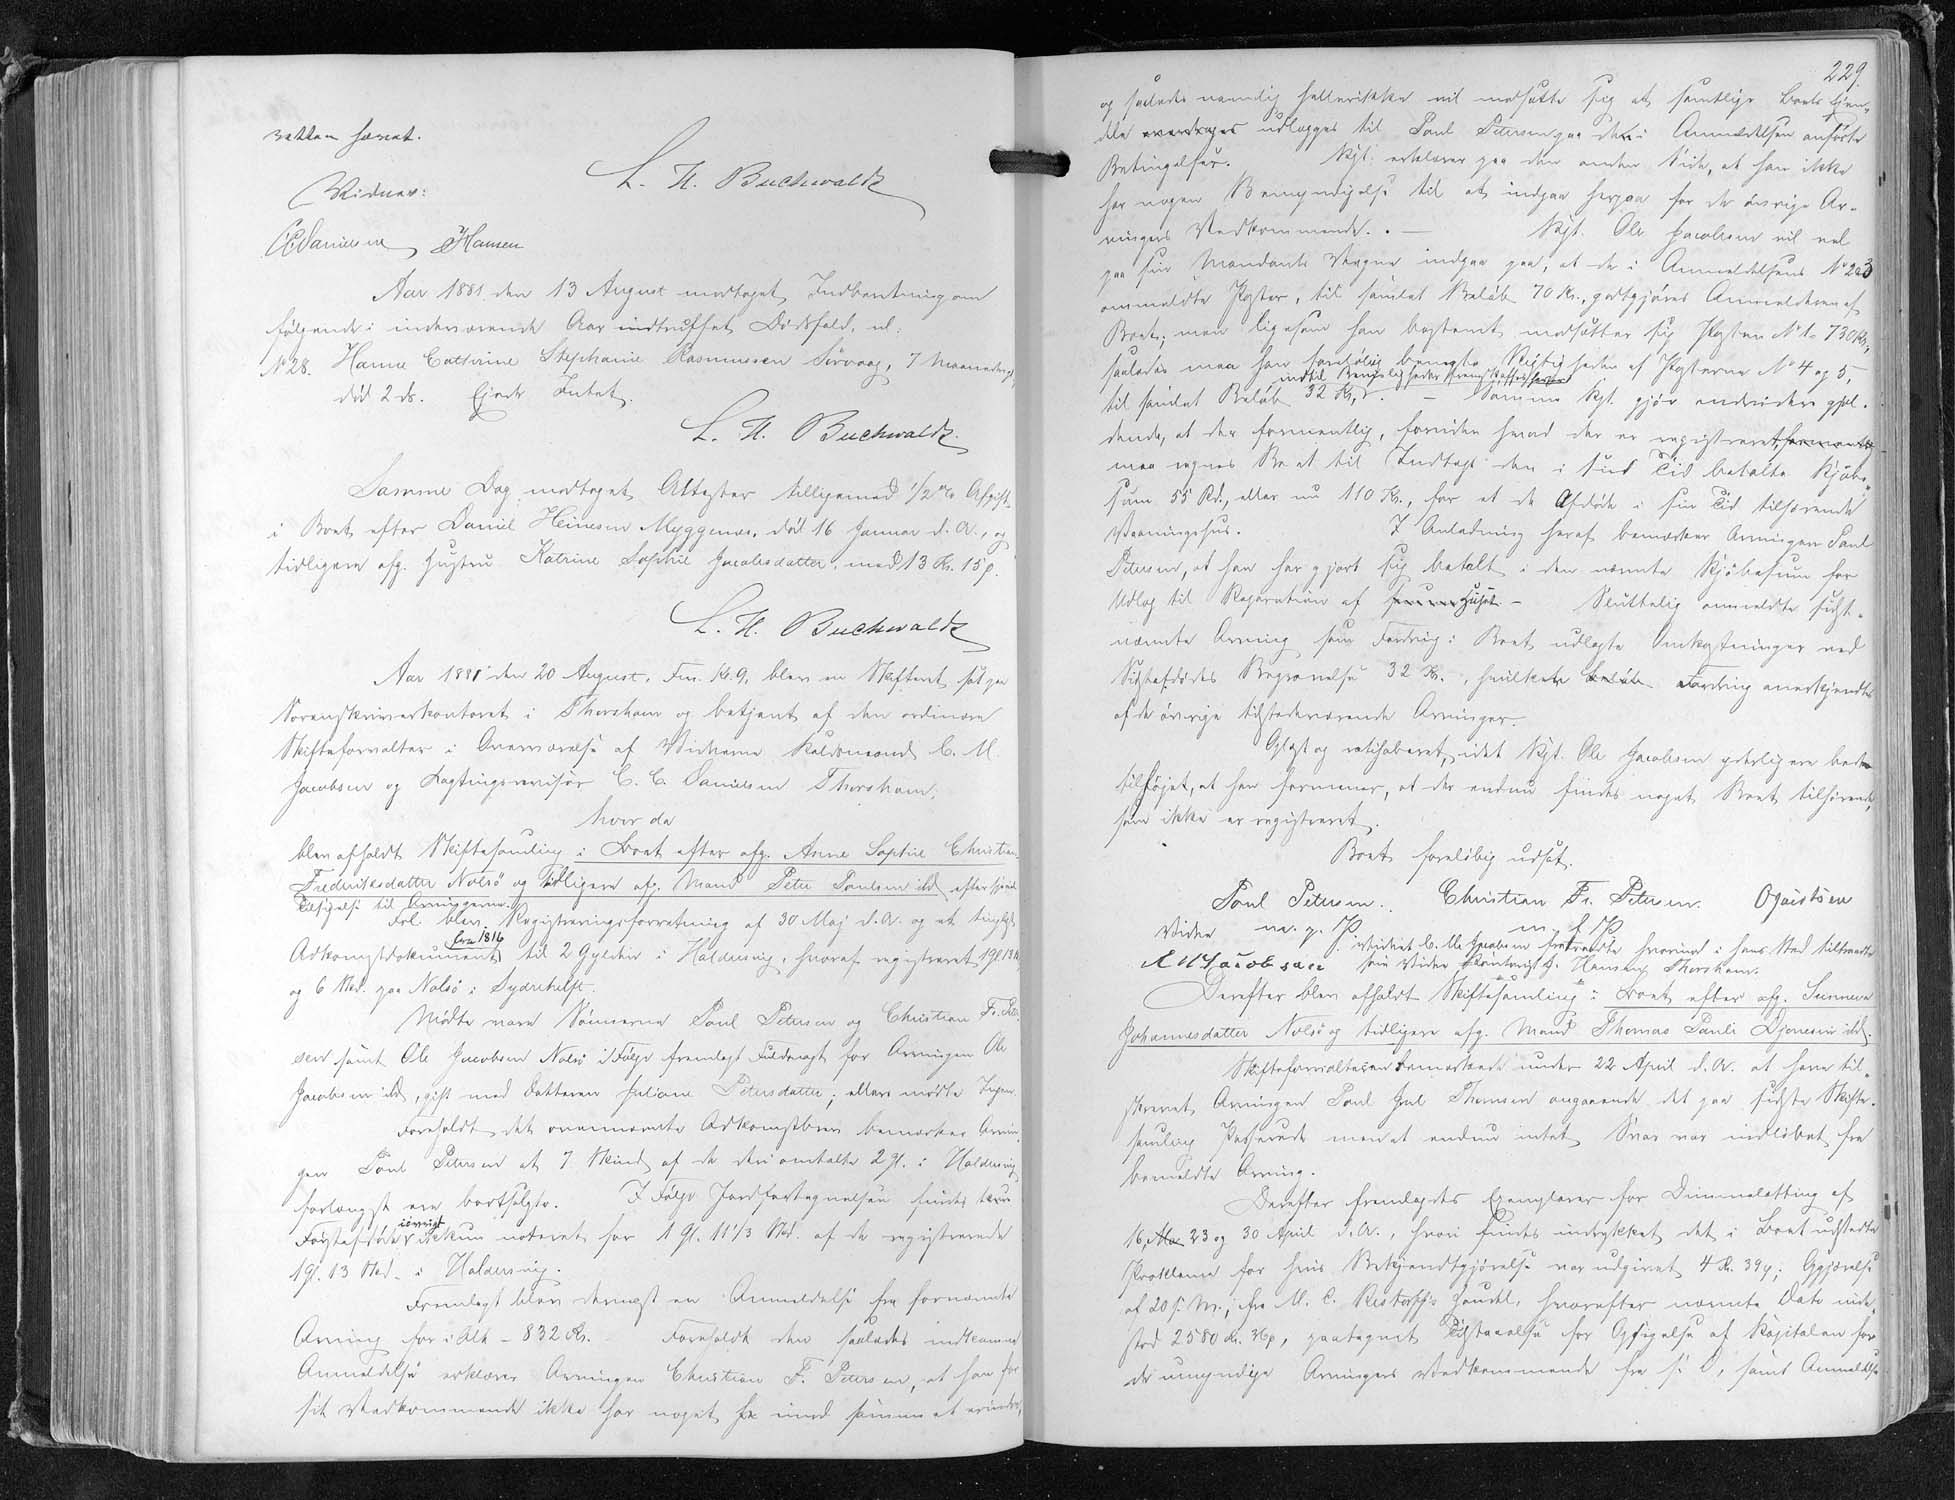 retten hævet.
L. H. Buchwaldt
Vidner:
CCDanielsen JHansen
Aar 1881 den 13 August modtaget Indberetning om
følgende i indeværende Aar indtruffet Dødsfald, nl:
No 28. Hanne Cathrine Stephanie Rasmussen Sörvaag, 7 Maaneder gl,
død 2 ds. Ejede Intet.
L. H. Buchwaldt.
Samme Dag modtaget Attester tilligemed 1/2 % Afgift
i Boet efter Daniel Heinesen Myggenæs, död 16 Januar d. A., og
tidligere afg. Hustru Katrine Sophie Jacobsdatter, med 13 Kr. 15 ø.
L. H. Buchwaldt
Aar 1881 den 20 August, Fm. Kl. 9, blev en Skifteret sat paa
Sorenskriverkontoret i Thorshavn og betjent af den ordinære
Skifteforvalter i Overværelse af Vidnerne Kuldsmand C. M.
Jacobsen og Lagtingsrevisor C. C. Danielsen Thorshavn;
hvor da
blev afholdt Skiftesamling i Boet efter afg. Anne Sophie Christian-
Frederiksdatter Nolsö og tidligere afg. Mand Peter Poulsen ibd efter skriftl.
Tilsigelse til Arvingerne.
Frl. blev Registreringsforretning af 30 Maj d. A. og et tinglyst
Adkomstdokument fra 1816 til 2 Gylden i Haldersvig, hvoraf registreret 1 gl. 13 Sk.
og 6 Skd. paa Nolsö i Sydrehelft.
Mødte vare Sønnerne Poul Petersen og Christian Fr. Peter-
sen samt Ole Jacobsen Nolsö ifølge fremlagt Fuldmagt for Arvingen Ole
Jacobsen ibd, gift med Datteren Juliane Petersdatter; ellers mødte Ingen.
Foreholdt det ovennævnte Adkomstbrev bemærker Arvin-
gen Poul Petersen at 7 Skind af de deri omtalte 2 gl. i Haldersvig
forlængst ere bortsolgte. Ifølge Jordfortegnelsen findes
Førstafdøde iøvrigt ikkun noteret for 1 gl. 11 1/3 Skd. af de registrerede
1 gl. 13 Skd. i Haldersvig.
Fremlagt blev dernæst en Anmeldelse fra fornævnte
Arving for i Alt - 832 Kr. Foreholdt den saaledes indkomne
Anmeldelse erklærer Arvingen Christian F. Petersen, at han for
sit Vedkommende ikke har noget imod samme at erindre,
229.
og saaledes navnlig hellerikke vil modsætte sig at samtlige Boets Ejen-
dele overdrages udlægges til Poul Petersen paa de i Anmeldelsen anførte
Betingelser. Kgt. erklærer paa den anden Side, at han ikke
har nogen Bemyndigelse til at indgaa herpaa for de övrige Ar-
vingers Vedkommende. — Kgt. Ole Jacobsen vil vel
paa sin Mandants Vegne indgaa paa, at de i Anmeldelsens No 2 og 3
anmeldte Poster, til samlet Beløb 70 Kr., godtgjøres Anmelderen af
Boet; men ligesom han bestemt modsætter sig Posten No 1 - 730 Kr.,
saaledes maa han foreløbig benegte Rigtigheden af Posterne No 4 og 5,
til samlet Beløb 32 Kr., indtil Bevisligheder fremskaffes herfor. - Samme Kgt. gjør endvidere gjæl-
dende, at der formentlig, foruden hvad der er registreret,
maa regnes Boet til Indtægt den i sin Tid betalte Kjøbe-
sum 55 Rd., eller nu 110 Kr., for et de Afdøde i sin Tid tilhørende
Vaaningshus. I Anledning heraf bemærker Arvingen Poul
Petersen, at han har gjort sig betalt i den nævnte Kjøbesum for
Udlæg til Reparation af Huset. — Sluttelig anmeldte sidst-
nævnte Arving som Fordring i Boet udlagte Omkostninger ved
Sidstafdødes Begravelse 32 Kr., hvilken Fordring anerkjendtes
af de øvrige tilstedeværende Arvinger.
Oplæst og ratihaberet, idet Kgt. Ole Jacobsen yderligere bad
tilføjet, at han formener, at der endnu findes noget Boet tilhørende,
som ikke er registreret.
Boet foreløbig udsat.
Poul Petersen. Christian Fr. Petersen. OJacobsen
m. f. P. m. f. P.
Vidnet C. M. Jacobsen fratraadte hvorimod i hans Sted tiltraadte
som Vidne Kontorist J. Hansen Thorshavn.
CMJacobsen
Derefter blev afholdt Skiftesamling i Boet efter afg. Sunneva
Johannesdatter Nolsö og tidligere afg. Mand Thomas Pauli Djonesen ibd.
Skifteforvalteren bemærkede under 22 April d. A. at have til-
skrevet Arvingen Poul Juul Thomsen angaaende det paa sidste Skifte-
samling Passerede men at endnu intet Svar var indløbet fra
bemeldte Arving.
Derefter fremlagdes Exemplarer for Dimmelætting af
16, 23 og 30 April d. A., hvori findes indrykket det i Boet udstedte
Proklama for hvis Bekjendtgjørelse var udgivet 4 Kr. 39 ø; Opgjørelse
af 20 f. M., fra M. C. Restorffs Handel, hvorefter nævnte Dato inde-
stod 2580 Kr. 36 ø, paategnet Tilstaaelse for Opsigelse af Kapitalen for
de umyndige Arvingers Vedkommende fra s. D., samt Anmeldelse